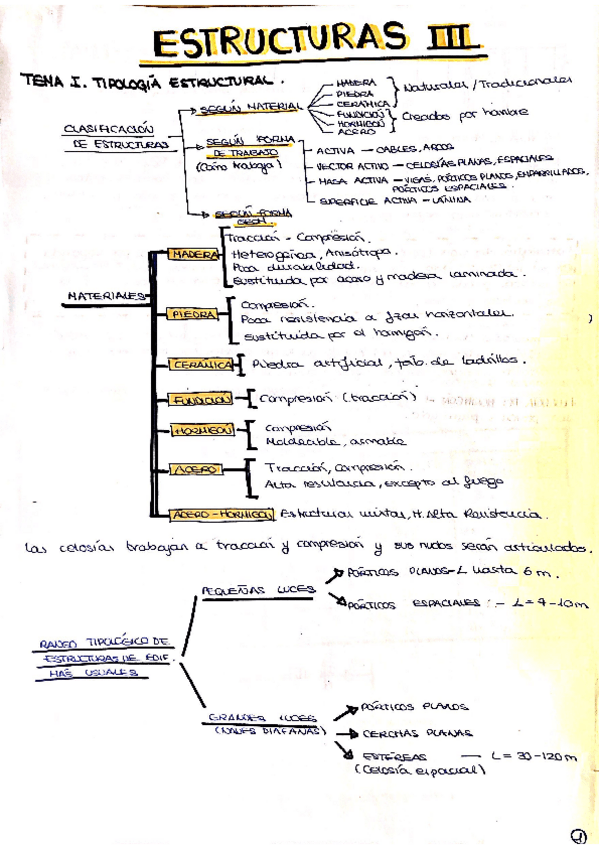 ESTRUCTURAS III
TEMA I. TIPOLOGÍA ESTRUCTURAL.
CLASIFICACIÓN
DE ESTRUCTURAS
SEGÚN MATERIAL
MADERA
PIEDRA
CERÁMICA
Naturales / Tradicionales
FUNDICIÓN
HORMIGÓN
ACERO
Creados por hombre
SEGÚN FORMA
DE TRABAJO
(Cómo trabaja)
ACTIVA - CABLES, ARCOS
VECTOR ACTIVO - CELOSÍAS PLANAS, ESPACIALES
MASA ACTIVA - VIGAS, PÓRTICOS PLANOS, EMPARRILLADOS,
PÓRTICOS ESPACIALES.
SUPERFICIE ACTIVA - LÁMINA
SEGÚN FORMA
GEOM.
MATERIALES
MADERA
Tracción - Compresión.
Heterogénea, Anisótropa.
Poca durabilidad.
Sustituida por acero y madera laminada.
PIEDRA
Compresión.
Poca resistencia a fzas horizontales.
Sustituida por el hormigón.
CERÁMICA
Piedra artificial, fab. de ladrillos.
FUNDICIÓN
Compresión (tracción)
HORMIGÓN
Compresión
Moldeable, armable
ACERO
Tracción, compresión.
Alta resistencia, excepto al fuego
ACERO-HORMIGÓN
Estructuras mixtas, H. Alta Resistencia.
Las celosías trabajan a tracción y compresión y sus nudos serán articulados.
RANGO TIPOLÓGICO DE
ESTRUCTURAS DE EDIF.
MÁS USUALES
PEQUEÑAS LUCES
PÓRTICOS PLANOS - L hasta 6 m.
PÓRTICOS ESPACIALES : - L = 4-10m
GRANDES LUCES
(NAVES DIÁFANAS)
PÓRTICOS PLANOS
CERCHAS PLANAS
ESTÉREAS - L = 30-120m
(Celosía espacial)
1